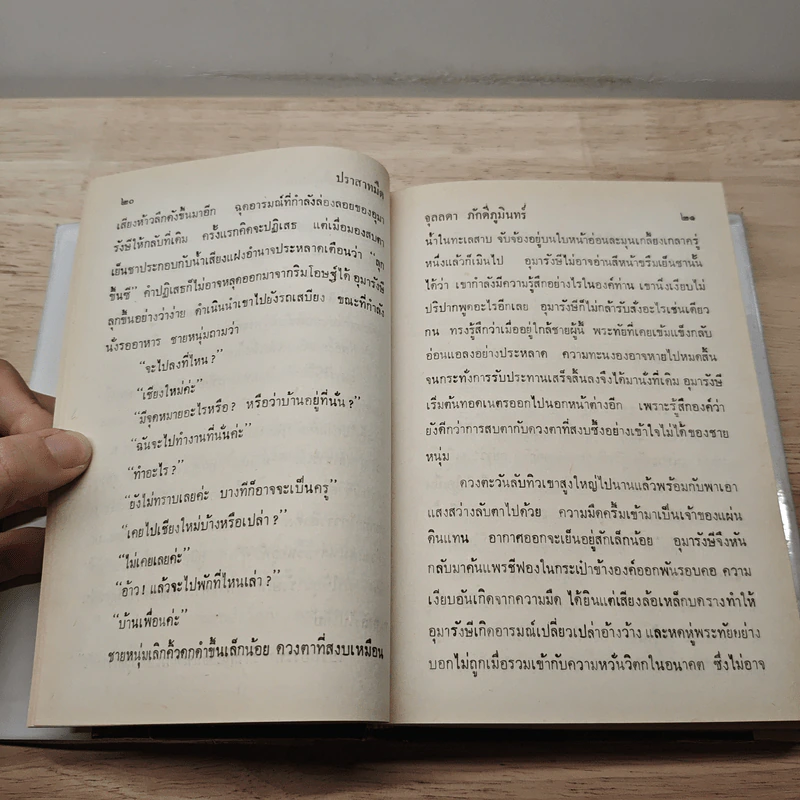 ๒๐
ปราสาทมืด
เสียงห้าวลึกดังขึ้นมาอีก ฉุดอารมณ์ที่กำลังล่องลอยของอุมา
รังษีให้กลับที่เดิม ครั้งแรกคิดจะปฏิเสธ แต่เมื่อมองสบตา
เย็นชาประกอบกับน้ำเสียงแฝงอำนาจประหลาดเตือนว่า “ลุก
ขึ้นซี” คำปฏิเสธก็ไม่อาจหลุดออกมาจากริมโอษฐ์ได้ อุมารังษี
ลุกขึ้นอย่างว่าง่าย ดำเนินนำเขาไปยังรถเสบียง ขณะที่กำลัง
นั่งรออาหาร ชายหนุ่มถามว่า
“จะไปลงที่ไหน?”
“เชียงใหม่ค่ะ”
“มีจุดหมายอะไรหรือ? หรือว่าบ้านอยู่ที่นั่น?”
“ฉันจะไปทำงานที่นั่นค่ะ”
“ทำอะไร?”
“ยังไม่ทราบเลยค่ะ บางทีก็อาจจะเป็นครู”
“เคยไปเชียงใหม่บ้างหรือเปล่า?”
“ไม่เคยเลยค่ะ”
“อ้าว! แล้วจะไปพักที่ไหนเล่า?”
“บ้านเพื่อนค่ะ”
ชายหนุ่มเลิกคิ้วดกดำขึ้นเล็กน้อย ดวงตาที่สงบเหมือน
จุลลดา ภักดีภูมินทร์
๒๑
น้ำในทะเลสาบ จับจ้องอยู่บนใบหน้าอ่อนละมุนเกลี้ยงเกลาครู่
หนึ่งแล้วก็เมินไป อุมารังษีไม่อาจอ่านสีหน้าขรึมเย็นชานั้น
ได้ว่า เขากำลังมีความรู้สึกอย่างไรในองค์ท่าน เขานั่งเงียบไม่
ปริปากพูดอะไรอีกเลย อุมารังษีก็ไม่กล้ารับสั่งอะไรเช่นเดียว
กน ทรงรู้สึกว่าเมื่ออยู่ใกล้ชายผู้นี้ พระทัยที่เคยเข้มแข็งกลับ
อ่อนแอลงอย่างประหลาด ความทะนงองอาจหายไปหมดสิ้น
จนกระทั่งการรับประทานเสร็จสิ้นลงจึงได้มานั่งที่เดิม อุมารังษี
เริ่มต้นทอดเนตรออกไปนอกหน้าต่างอีก เพราะรู้สึกองค์ว่า
ยังดีกว่าการสบตากับดวงตาที่สงบซึ้งอย่างเข้าใจไม่ได้ของชาย
หนุ่ม
ดวงตะวันลับทิวเขาสูงใหญ่ไปนานแล้วพร้อมกับพาเอา
แสงสว่างลับตาไปด้วย ความมืดครึ้มเข้ามาเป็นเจ้าของแผ่น
ดินแทน อากาศออกจะเย็นอยู่สักเล็กน้อย อุมารังษีจึงหัน
กลับมาค้นแพรชีฟองในกระเป๋าข้างองค์ออกพันรอบคอ ความ
เงียบอันเกิดจากความมืด ได้ยินแต่เสียงล้อเหล็กบดรางทำให้
อุมารังษีเกิดอารมณ์เปลี่ยวเปล่าอ้างว้าง และหดหู่พระทัยอย่าง
บอกไม่ถูกเมื่อรวมเข้ากับความหวั่นวิตกในอนาคต ซึ่งไม่อาจ